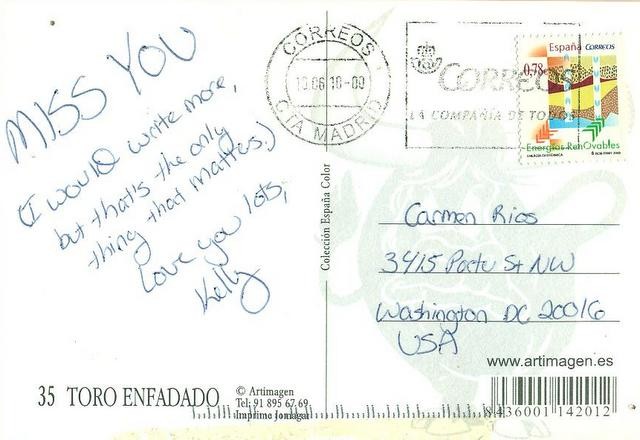 MISS YOU
(I would write more,
but that's the only
thing that matters.)
Love you lots,
Kelly
CORREOS
10.06.10-00
CTA MADRID
CORREOS
LA COMPAÑIA DE TODOS
España CORREOS
0,78€
Energías RenOvables
Colección España Color
Carmen Rios
3415 Porter St NW
Washington DC 20016
USA
www.artimagen.es
35 TORO ENFADADO
© Artimagen
Tel: 91 895 67 69
Imprime Jomagar
8 436001 142012